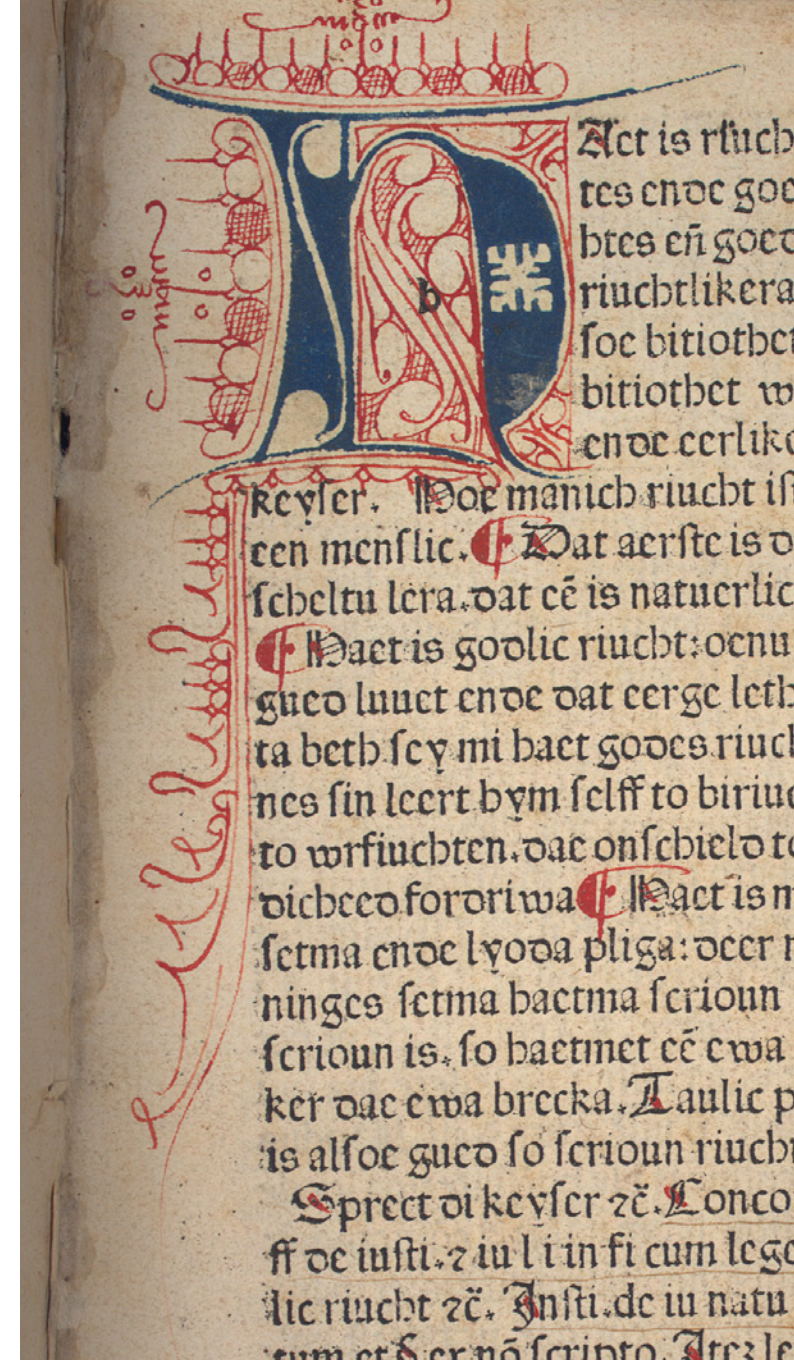 b
Aet is rſuch
tes ende goe
htes en̄ goed
riuchtlikera
ſoe bitiothet
bitiothet w
ende eerlike
keyſer. Hoe manich riucht iſ
een menſlic. ¶ Dat aerſte is o
ſcheltu lera. dat cē is natuerlic
¶ Haet is godlic riucht: oenu
gued luuet ende dat eerge leth
ta heth ſey mi haet godes riuch
nes ſin leert hym ſelff to biriuc
to wrfiuchten. dae onſchield to
dichceed fordriwa ¶ Haet is m
ſetma ende lyoda pliga: deer
ninges ſetma haetma ſcrioun
ſcrioun is. ſo haetmet cē ewa
ker dae ewa brecka. Taulic p
is alſoe gued ſo ſcrioun riucht
Sprect di keyſer ⁊c̄. Conco
ff de iuſti. ⁊ iu l i in fi cum lege
lic riucht ⁊c̄. Inſti. de iu natu
tum et & ex nō ſcripto. Itez le